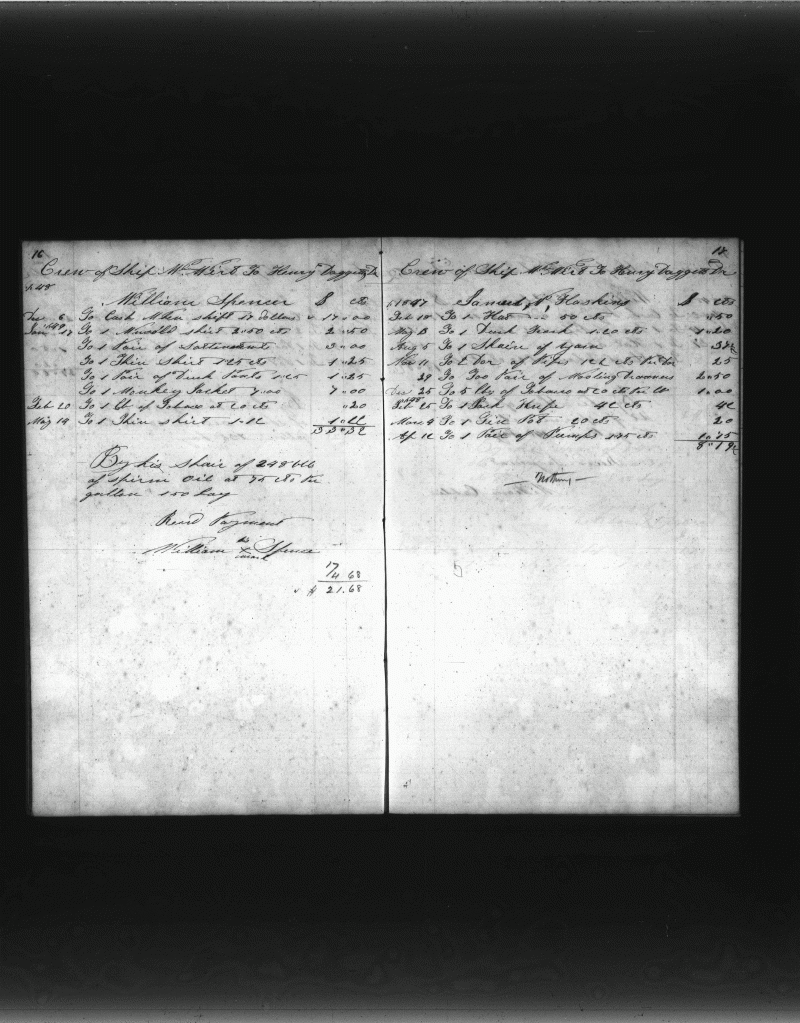 16
Crew of Ship Wm Wirt To Henry Daggett Dr
1848
William Spencer $ cts
Dec 6 To Cash When shipt 17 dollars 17.00
Jan 1849 17 To 1 shirt 2.50 cts 2.50
To 1 Pair of 3.00
To 1 Thin Shirt 1.25 cts 1.25
To 1 Pair of Duck Pants 1.25 1.25
To 1 Monkey Jacket 7.00 7.00
Feb 20 To 1 lb of Tobaco at 20 cts .20
May 19 To 1 Thin shirt
By his Share of 248 bbls
of spirm Oil at 75 cts the
gallon 150 Lay
Recd Payment
William his X mark Spence
17
4.68
$ 21.68
18
Crew of Ship Wm Wirt To Henry Daggett Dr
1847 James Haskins $ cts
Feb 18 To 1 Hat 50 cts .50
To 1 Duck Frock 1.20 cts 1.20
Aug 5 To 1 Skain of Yarn
Nov 11 To 2 of Pipes 12½ cts 25
29 To Two Pair of 2.50
Dec 25 To 5 lbs of Tobaco at 20 cts the lb 1.00
Feb 25 To 1 Knife 42 cts 42
Mar 4 To 1 Tin Pot 20 cts 20
Ap 12 To 1 Pair of Pumps
— Nothing —